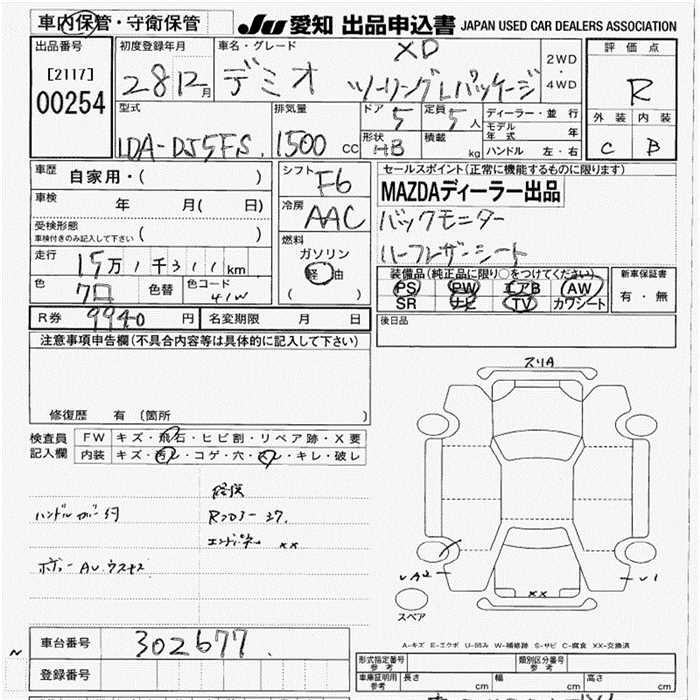 車内保管・守衛保管
JU 愛知 出品申込書 JAPAN USED CAR DEALERS ASSOCIATION
出品番号
[2117]
00254
初度登録年月
28 12月
車名・グレード
XD
デミオ ツーリングLパッケージ
2WD
・
4WD
評価点
R
外装 内装
C B
型式
LDA-DJ5FS
排気量
1500 cc
ドア 5
定員 5人
形状 HB
積載 kg
ディーラー・並行
モデル年式 年
ハンドル 左・右
車歴 自家用・( )
車検 年 月( 日)
受検形態
車検付きのみ記入して下さい ( )
走行 15万1千311km
色
色替
色コード 41W
シフト F6
冷房 AAC
燃料
ガソリン
軽油
( )
セールスポイント(正常に機能するものに限ります)
MAZDAディーラー出品
バックモニター
ハーフレザーシート
装備品(純正品に限り○をつけてください)
PS PW エアB AW
SR ナビ TV カワシート
新車保証書
有・無
後日品
R券 9940円
名変期限 月 日
注意事項申告欄(不具合内容等は具体的に記入して下さい)
修復歴 有 (箇所 )
検査員記入欄
FW キズ・飛石・ヒビ割・リペア跡・X要
内装 キズ・汚レ・コゲ・穴・スレ・キレ・破レ
ハンドルカバー付
ボデー AU ウスキズ
スリA
xx
UA2
U1
スペア
A-キズ E-エクボ U-凹み W-補修跡 S-サビ C-腐食 XX-交換済
車台番号 302677
登録番号
形式指定番号 参考
類別区分番号 参考
車庫証明用 参考
長さ cm
幅 cm
高さ cm